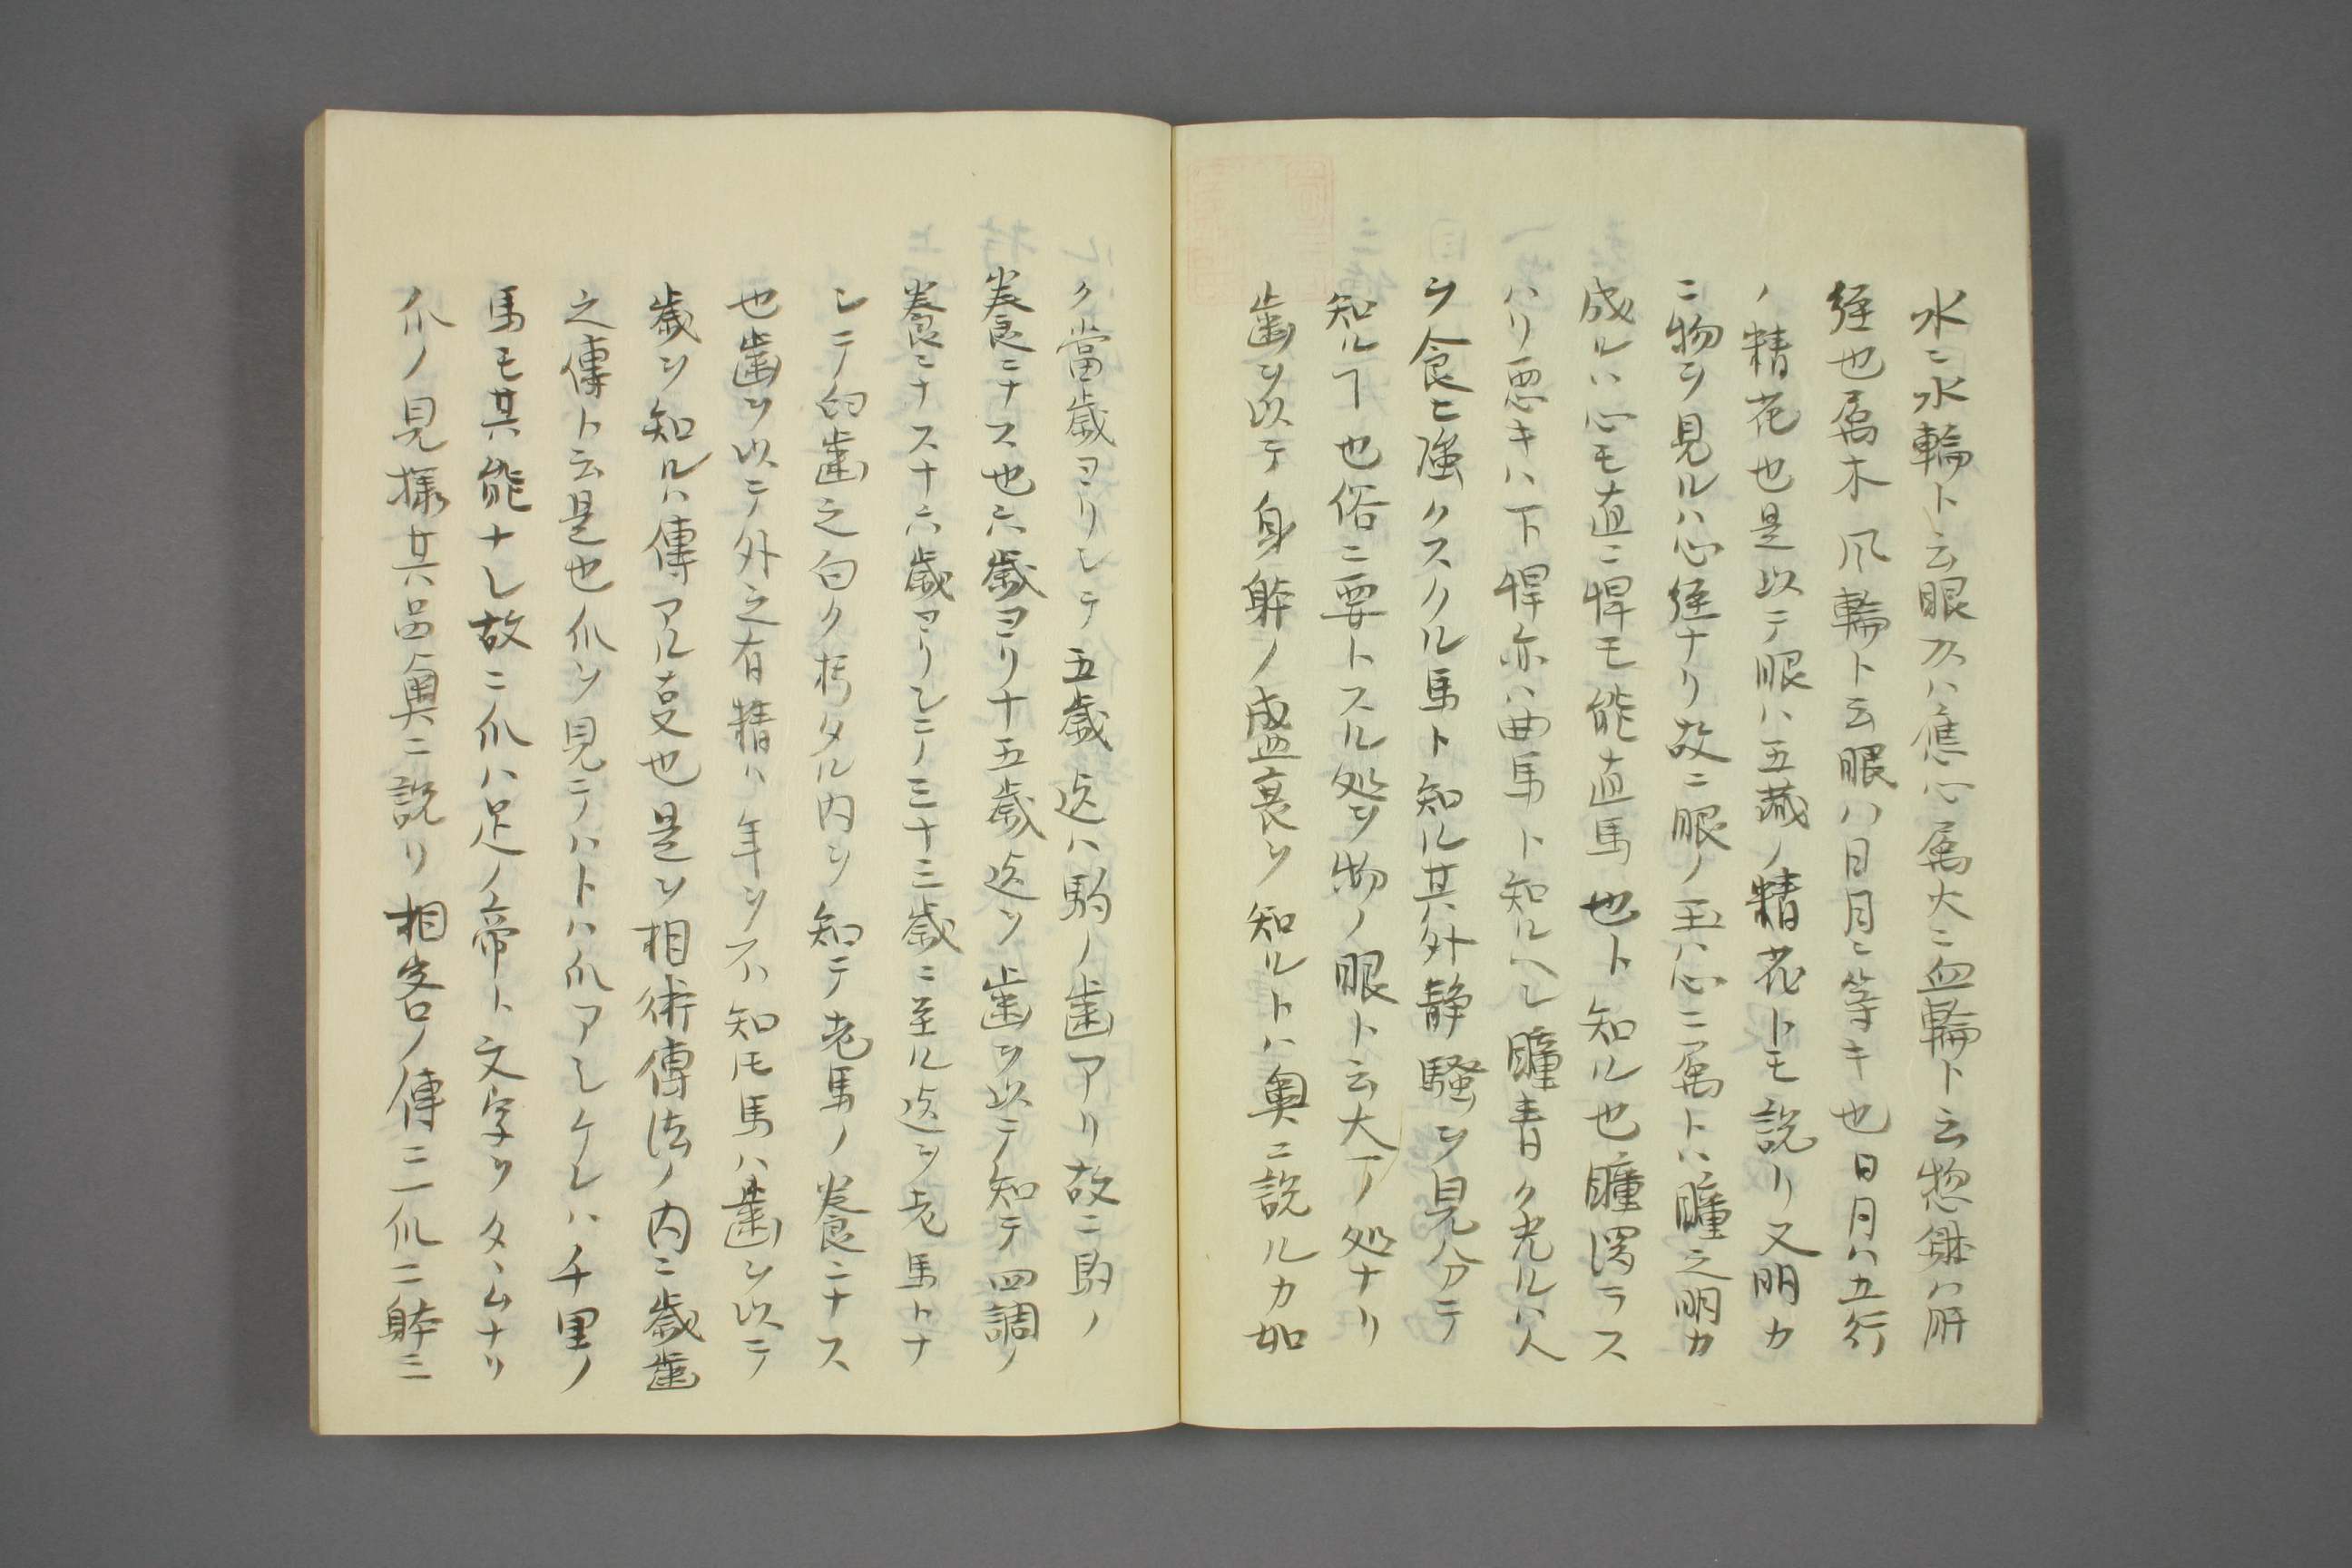 水ニ水輪ト云眼乃ハ應心属火ニ血輪ト云惣鉢ハ肝
経也属木風輪ト云眼ハ日月ニ等キ也日月ハ五行
ノ精花也是以テ眼ハ五臓ノ精花トモ説リ又明カ
ニ物ヲ見ルハ心経ナリ故ニ眼ノ玉ハ心ニ属トハ瞳之明カ
成ルハ心モ直ニ悍モ能直馬也ト知ル也瞳濁ラス
ハリ悪キハ下悍亦ハ曲馬ト知ルヘシ瞳青ク光ルハ人
ヲ食ヒ強クスクル馬ト知ル其外静騒ヲ見分テ
知ルヿ也俗ニ要トスル処ヲ物ノ眼ト云大丁ノ処ナリ
歯ヲ以テ身躰ノ盛衰ヲ知ルトハ奥ニ説ルカ如
ク當歳ヨリシテ五歳迄ハ駒ノ歯アリ故ニ駒ノ
養ニナス也六歳ヨリ十五歳迄ヲ歯ヲ以テ知テ四調ノ
養ニナス十六歳ヨリシテ三十三歳ニ至ル迄ヲ老馬トナ
シテ臼歯之白ク朽タル内ヲ知テ老馬ノ養ニナス
也歯ヲ以テ外之有精ハ年ヲ不知トモ馬ハ歯ヲ以テ
歳ヲ知ルハ傳アル㕝也是ヲ相術傳法ノ内ニ歳歯
之傳ト云是也爪ヲ見テハトハ爪アシケレハ千里ノ
馬モ其能ナシ故ニ爪ハ足ノ帝ト文字リタヽムナリ
爪ノ見様其品奥ニ説リ相畧ノ傳ニ爪ニ躰三